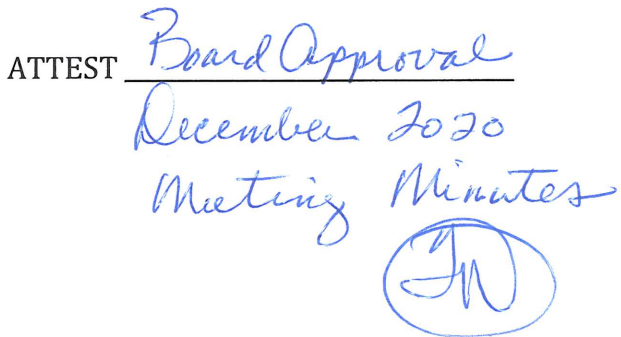 ATTEST Board Approval
December 2020
Meeting Minutes